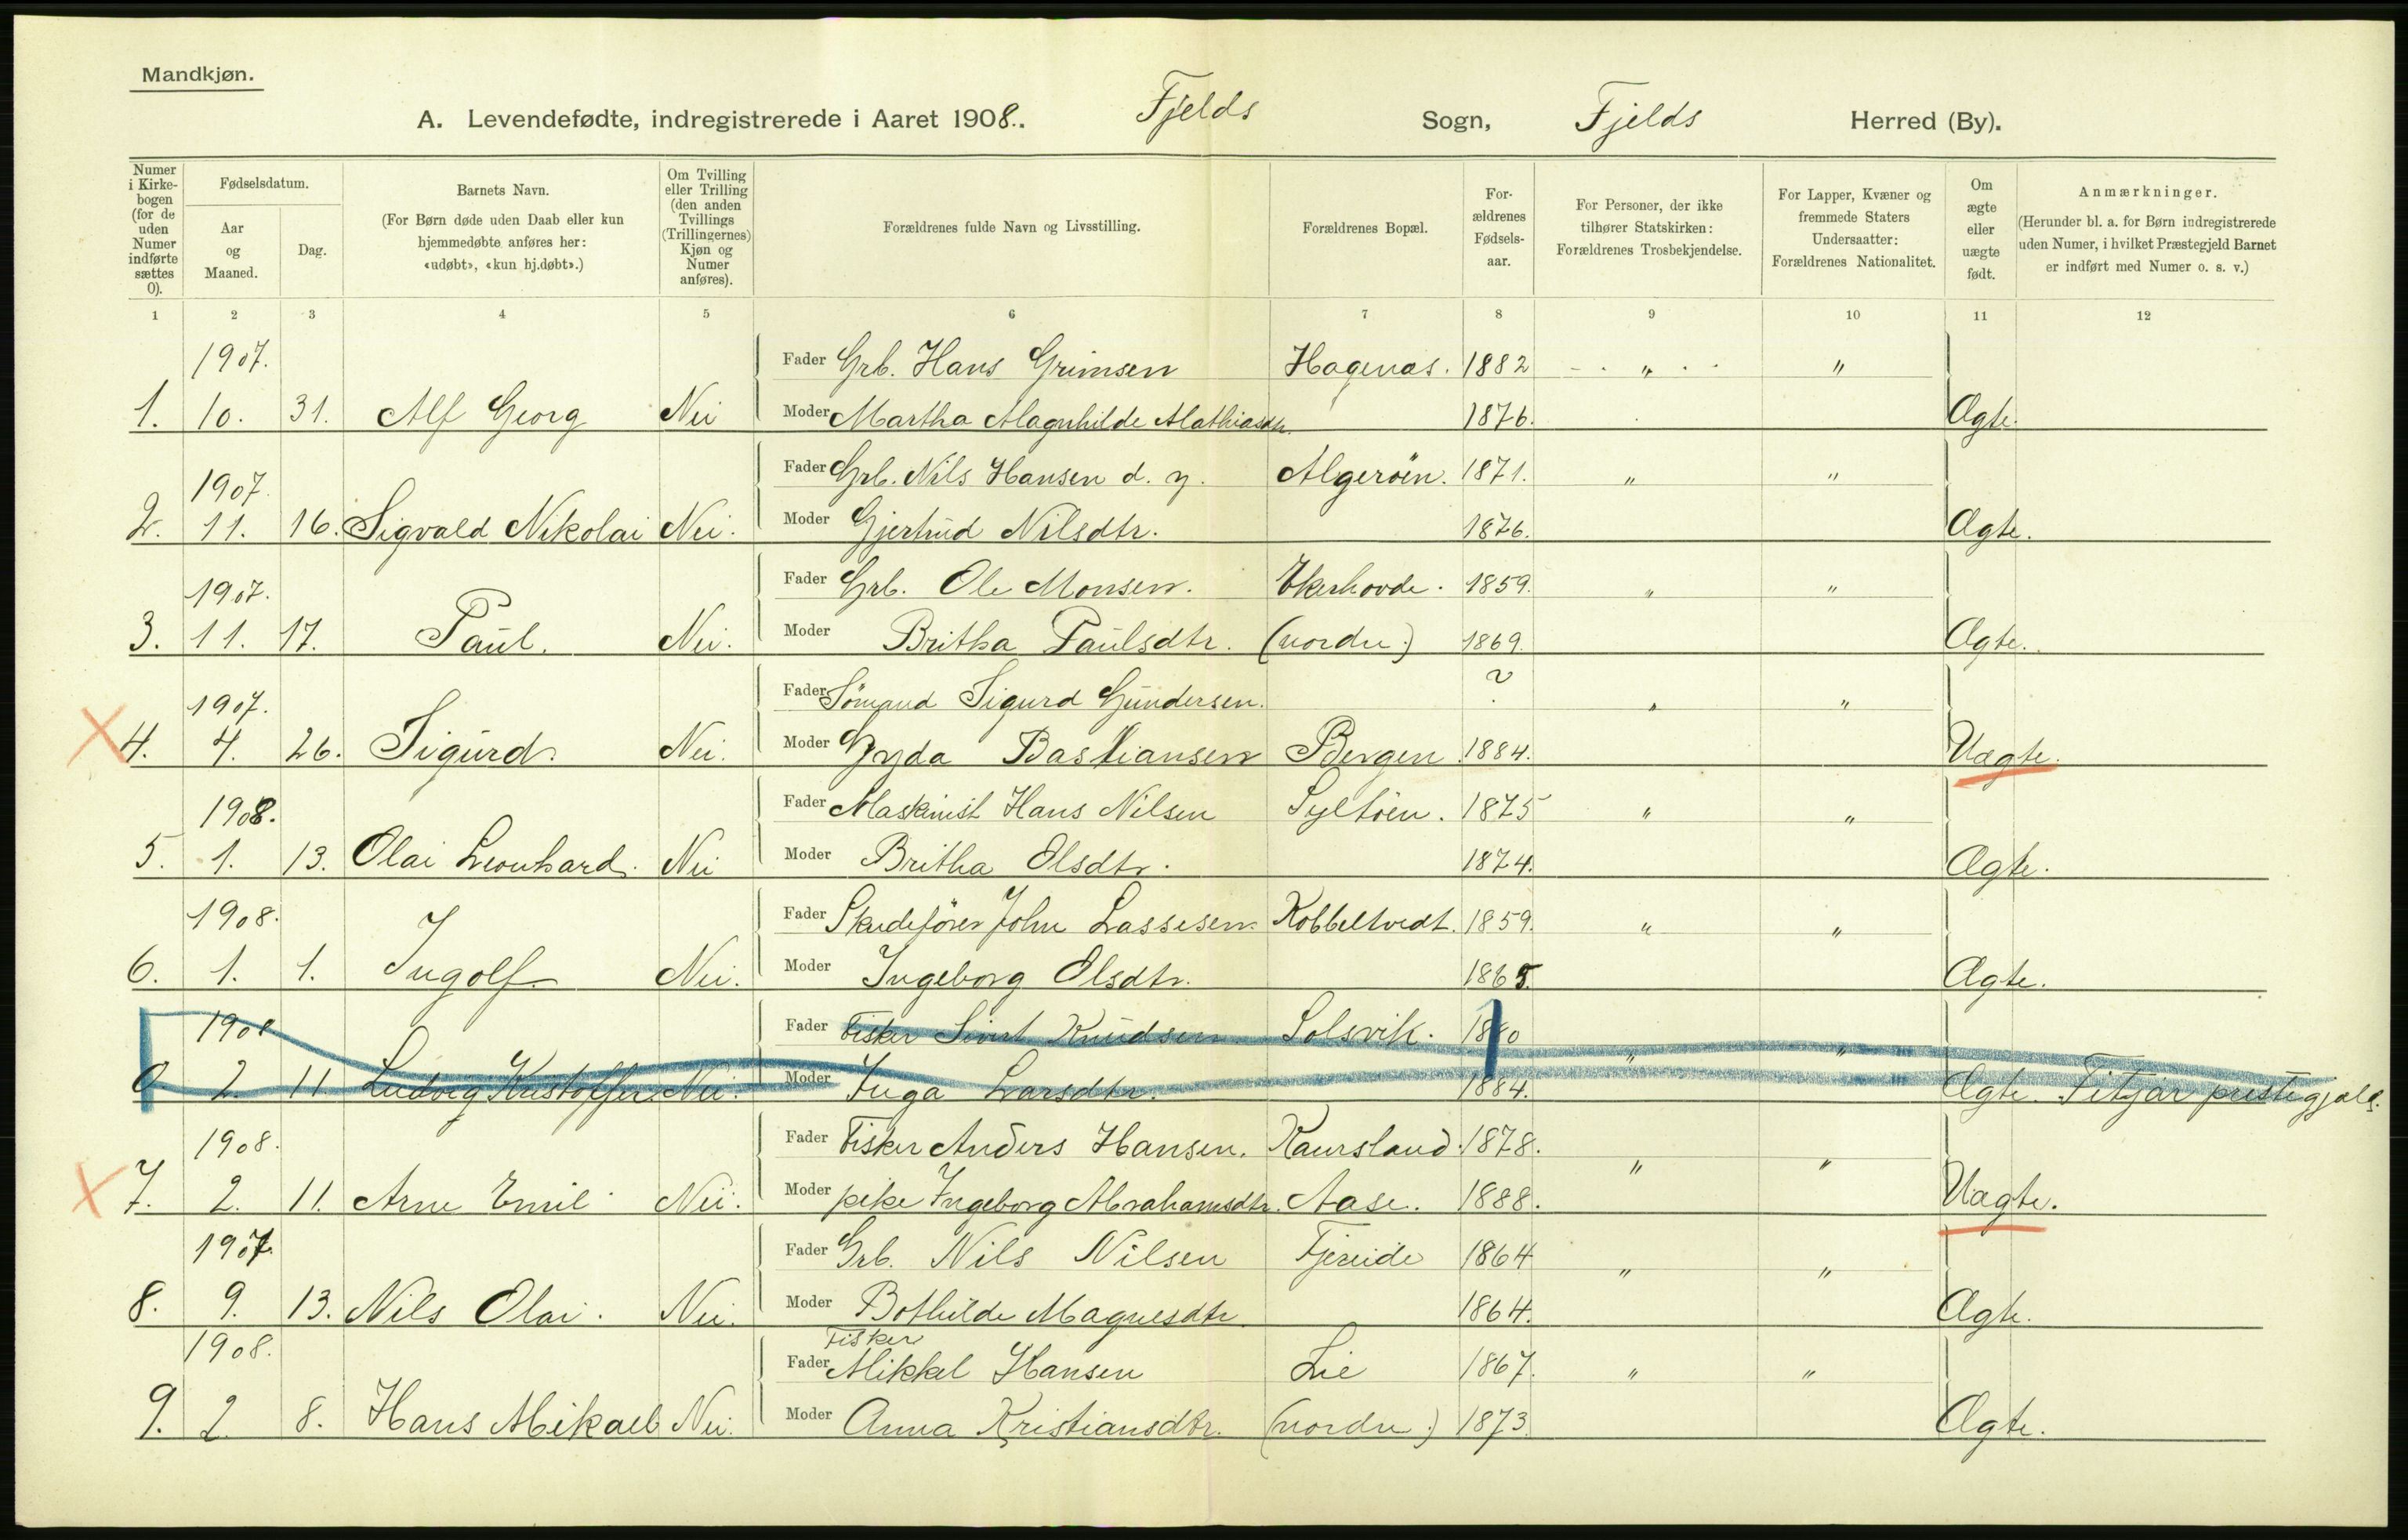 Mandkjøn.
A. Levendefødte, indregistrerede i Aaret 1908. Fjelds Sogn, Fjelds Herred (By).
Numer i Kirkebogen (for de uden Numer indførte sættes 0).
Fødselsdatum.
Aar og Maaned.
Dag.
Barnets Navn.
(For Børn døde uden Daab eller kun hjemmedøbte anføres her: «udøbt», «kun hj.døbt».)
Om Tvilling eller Trilling (den anden Tvillings (Trillingernes) Kjøn og Numer anføres).
Forældrenes fulde Navn og Livsstilling.
Forældrenes Bopæl.
Forældrenes Fødselsaar.
For Personer, der ikke tilhører Statskirken: Forældrenes Trosbekjendelse.
For Lapper, Kvæner og fremmede Staters Undersaatter: Forældrenes Nationalitet.
Om ægte eller uægte født.
Anmærkninger.
(Herunder bl. a. for Børn indregistrerede uden Numer, i hvilket Præstegjeld Barnet er indført med Numer o. s. v.)
1 2 3 4 5 6 7 8 9 10 11 12
1907. Fader Grb. Hans Grimsen Hagenæs. 1882 " "
1. 10. 31. Alf Georg Nei Moder Martha Magnhilde Mathiasdtr. 1876. Ægte.
1907. Fader Grb. Nils Hansen d. y. Algerøen. 1871. " "
2. 11. 16. Sigvald Nikolai Nei. Moder Gjertrud Nilsdtr. 1876. Ægte.
1907. Fader Grb. Ole Monsen. Ekerhovde. 1859. " "
3. 11. 17. Paul. Nei. Moder Britha Paulsdtr. (nordre) 1869. Ægte.
1907. Fader Sömand Sigurd Gundersen. ? " "
4. 4. 26. Sigurd. Nei. Moder Gyda Bastiansen Bergen 1884. Uægte.
1908. Fader Maskinist Hans Nilsen Syltöen. 1875 " "
5. 1. 13. Olai Leonhard. Nei Moder Britha Olsdtr. 1874. Ægte.
1908. Fader Skudefører John Lassesen. Kobbeltvedt. 1859. " "
6. 1. 1. Ingolf Nei. Moder Ingeborg Olsdtr. 1865. Ægte.
1908 Fader Fisker Sivert Knudsen Solsvik. 1880 " "
0 2. 11 Ludvig Kristoffer. Nei. Moder Inga Larsdtr. 1884. Ægte. Fitjar prestegjæld.
1908. Fader Fisker Anders Hansen. Kaursland. 1878. " "
7. 2. 11. Arne Emil. Nei. Moder pike Ingeborg Abrahamsdtr. Aase. 1888. Uægte.
1907. Fader Grb. Nils Nilsen Fjereide 1864 " "
8. 9. 13. Nils Olai. Nei. Moder Bothilde Magnesdtr. 1864. Ægte.
1908. Fader Fisker Mikkel Hansen Lie 1867. " "
9. 2. 8. Hans Mikael Nei. Moder Anna Kristiansdtr. (nordre) 1873. Ægte.